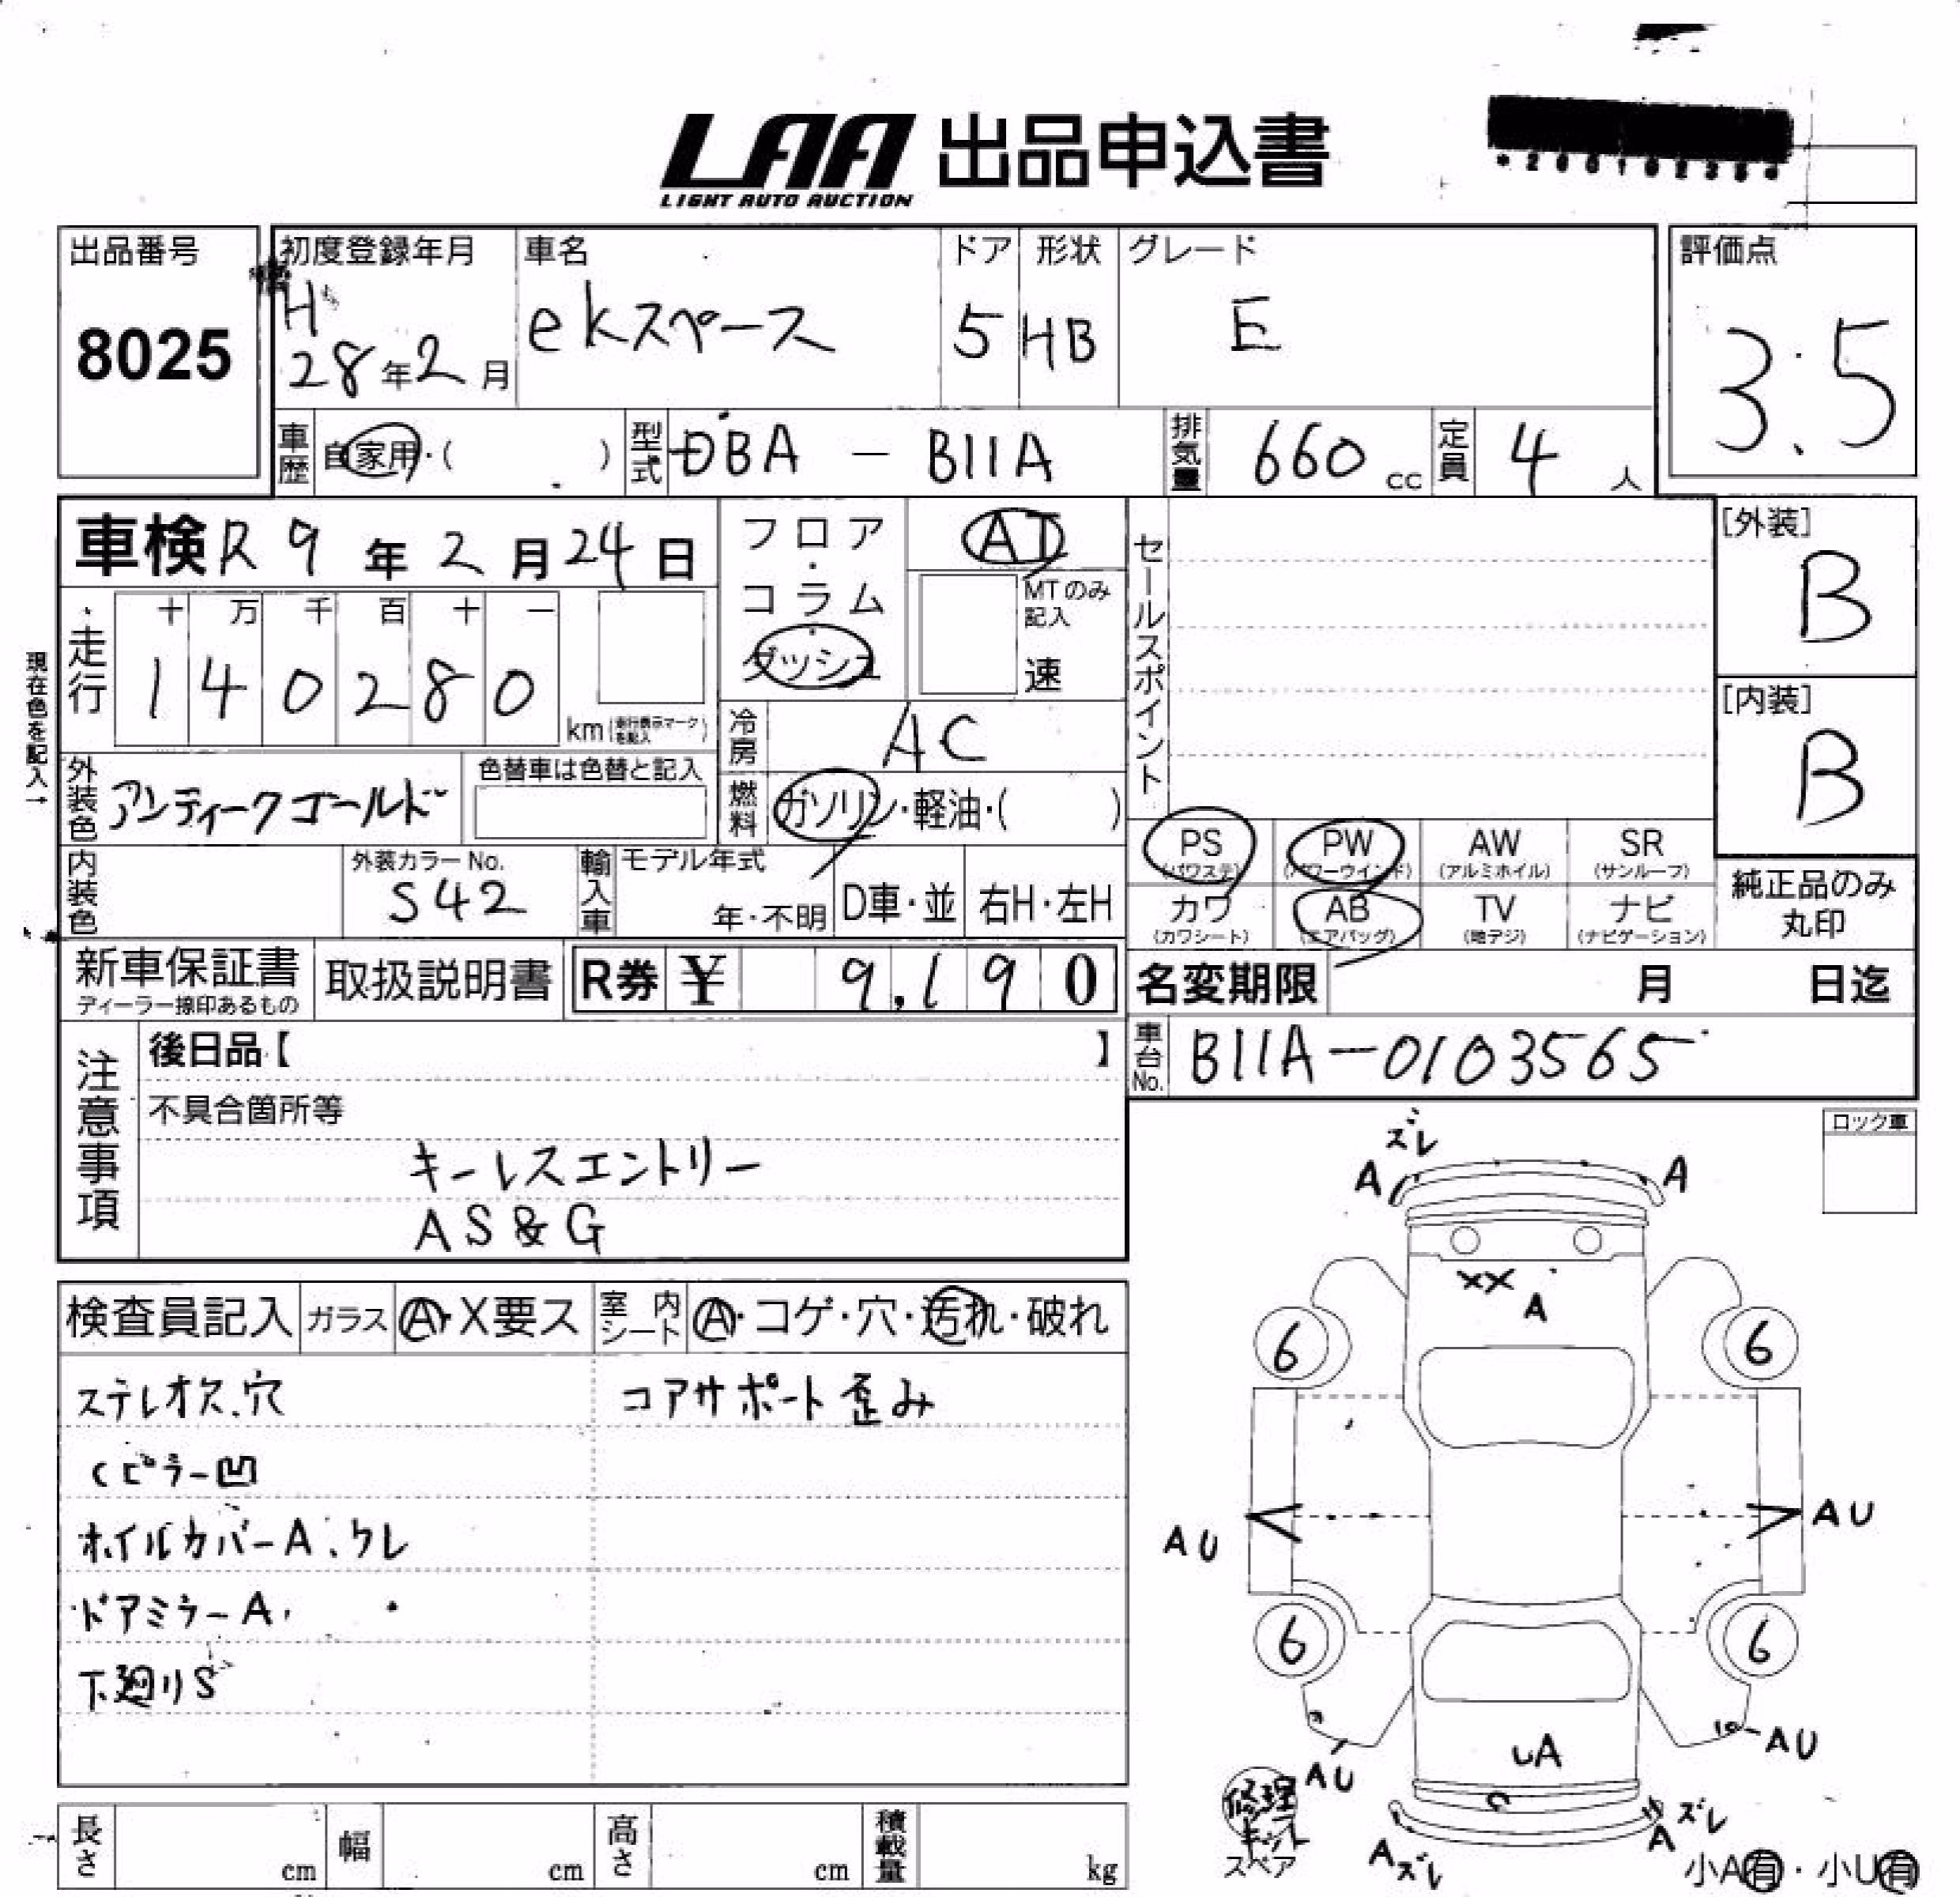 LAA 出品申込書
LIGHT AUTO AUCTION
出品番号
8025
初度登録年月
H
28年2月
車名
ekスペース
ドア
5
形状
HB
グレード
E
評価点
3.5
車歴
自家用・( )
型式
DBA - B11A
排気量
660 cc
定員
4 人
車検 R 9年 2月 24日
フロア・コラム・ダッシュ
AT
MTのみ記入
速
セールスポイント
[外装]
B
現在色を記入→
走行
十 万 千 百 十 一
1 4 0 2 8 0
km (走行表示マークを記入)
冷房
AC
[内装]
B
外装色
アンティークゴールド
色替車は色替と記入
燃料
ガソリン・軽油・( )
PS (パワステ)
PW (パワーウインド)
AW (アルミホイル)
SR (サンルーフ)
内装色
外装カラーNo.
S42
輸入車
モデル年式
年・不明
D車・並
右H・左H
カワ (カワシート)
AB (エアバッグ)
TV (地デジ)
ナビ (ナビゲーション)
純正品のみ
丸印
新車保証書
ディーラー捺印あるもの
取扱説明書
R券 ¥ 9,190
名変期限 月 日迄
車台No.
B11A-0103565
注意事項
後日品【 】
不具合箇所等
キーレスエントリー
AS&G
ロック車
ズレ
A A
XX
A
6 6
AU AU
6 6
AU AU
UA
修理
キット
スペア
Aズレ
A ズレ
小A有・小U有
検査員記入
ガラス
A・X要ス
室内シート
A・コゲ・穴・汚れ・破れ
ステレオ欠.穴
コアサポート歪み
Cピラー凹
ホイルカバーA.ワレ
ドアミラーA.
下廻りS
長さ cm
幅 cm
高さ cm
積載量 kg